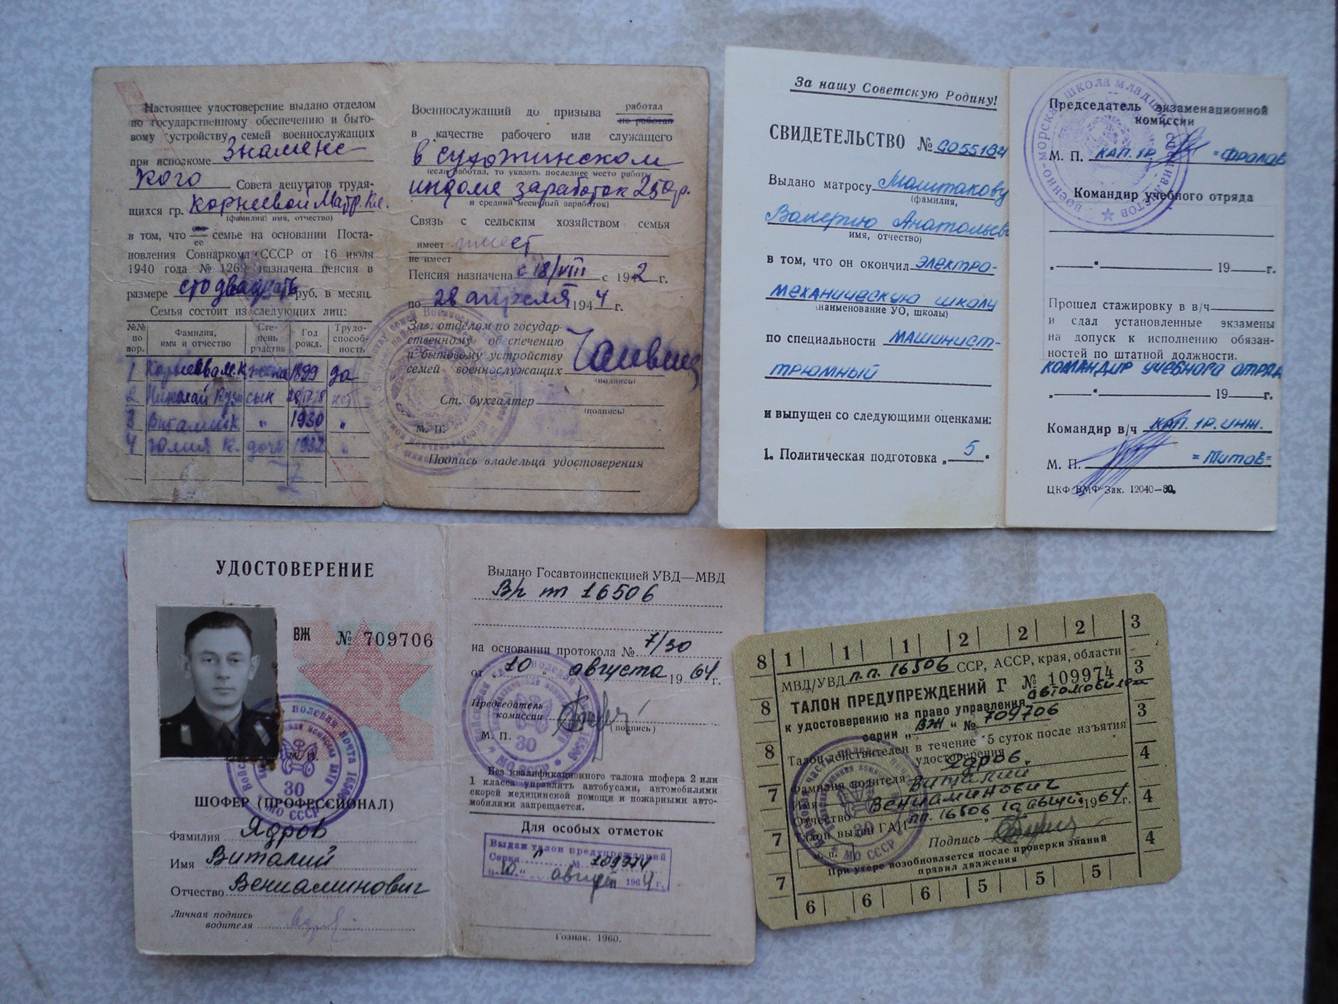 Настоящее удостоверение выдано отделом
по государственному обеспечению и быто-
вому устройству семей военнослужащих
при исполкоме Знаменс-
кого Совета депутатов трудя-
щихся гр. Корнеевой Матр.
(фамилия, имя, отчество)
в том, что ее семье на основании Поста-
новления Совнаркома СССР от 16 июля
1940 года № 1269 назначена пенсия в
размере сто двадцать руб. в месяц.
Семья состоит из следующих лиц:
№№ по пор. Фамилия, имя и отчество Сте-пень родства Год рожд. Трудо-способ-ность
1 Корнеева М.К. жена 1899 да
2 Николай сын
3 Виталий К " 1930 "
4 Юлия К. дочь 1932 "
Военнослужащий до призыва работал
не работал
в качестве рабочего или служащего
в Судожинском
(если работал, то указать последнее место работы
заработок 250 р.
и средний месячный заработок)
Связь с сельским хозяйством семья
имеет имеет
не имеет
Пенсия назначена с 18/VIII с 1942 г.
по 28 апреля 1944 г.
Зав. отделом по государ-
ственному обеспечению
и бытовому устройству
семей военнослужащих
(подпись)
Ст. бухгалтер
(подпись)
М. П.
Подпись владельца удостоверения
За нашу Советскую Родину!
СВИДЕТЕЛЬСТВО №
Выдано матросу Маштакову
(фамилия,
Валерию Анатольев
имя, отчество)
в том, что он окончил электро-
механическую школу
(наименование УО, школы)
по специальности машинист-
трюмный
и выпущен со следующими оценками:
1. Политическая подготовка „ 5 “
Председатель экзаменационной
комиссии
М. П. КАП. 1Р. =Фролов
Командир учебного отряда
„ “ 19 г.
Прошел стажировку в в/ч
и сдал установленные экзамены
на допуск к исполнению обязан-
ностей по штатной должности.
КОМАНДИР УЧЕБНОГО ОТРЯДА
„ “ 19 г.
Командир в/ч КАП. 1Р. ИНЖ.
М. П. =Титов=
ЦКФ ВМФ Зак. 12040—80.
УДОСТОВЕРЕНИЕ
ВЖ № 709706
ШОФЕР (ПРОФЕССИОНАЛ)
Фамилия Ядров
Имя Виталий
Отчество Вениаминович
Личная подпись
водителя
Выдано Госавтоинспекцией УВД—МВД
16506
на основании протокола № 7/30
от „10 августа 1964 г.
Председатель
комиссии
(подпись)
М. П.
Без квалификационного талона шофера 2 или
1 класса управлять автобусами, автомобилями
скорой медицинской помощи и пожарными авто-
мобилями запрещается.
Для особых отметок
Выдан талон предупреждений
Серия Г № 109974
„10“ август 1964 г.
Гознак. 1960.
8 1 1 1 2 2 2 3
МВД/УВД п.п. 16506 ССР, АССР, края, области
ТАЛОН ПРЕДУПРЕЖДЕНИЙ Г № 109974
к удостоверению на право управления автомобилем
серии „ВЖ“ № 709706
Талон действителен в течение 5 суток после изъятия
удостоверения
Фамилия водителя Ядров.
Имя Виталий
Отчество Вениаминович
Талон выдан ГАИ п.п. 16506 10 август 1964 г.
Подпись
При утере возобновляется после проверки знаний
правил движения
8 8 7 7 7
3 3 4 4 4
6 6 6 5 5 5